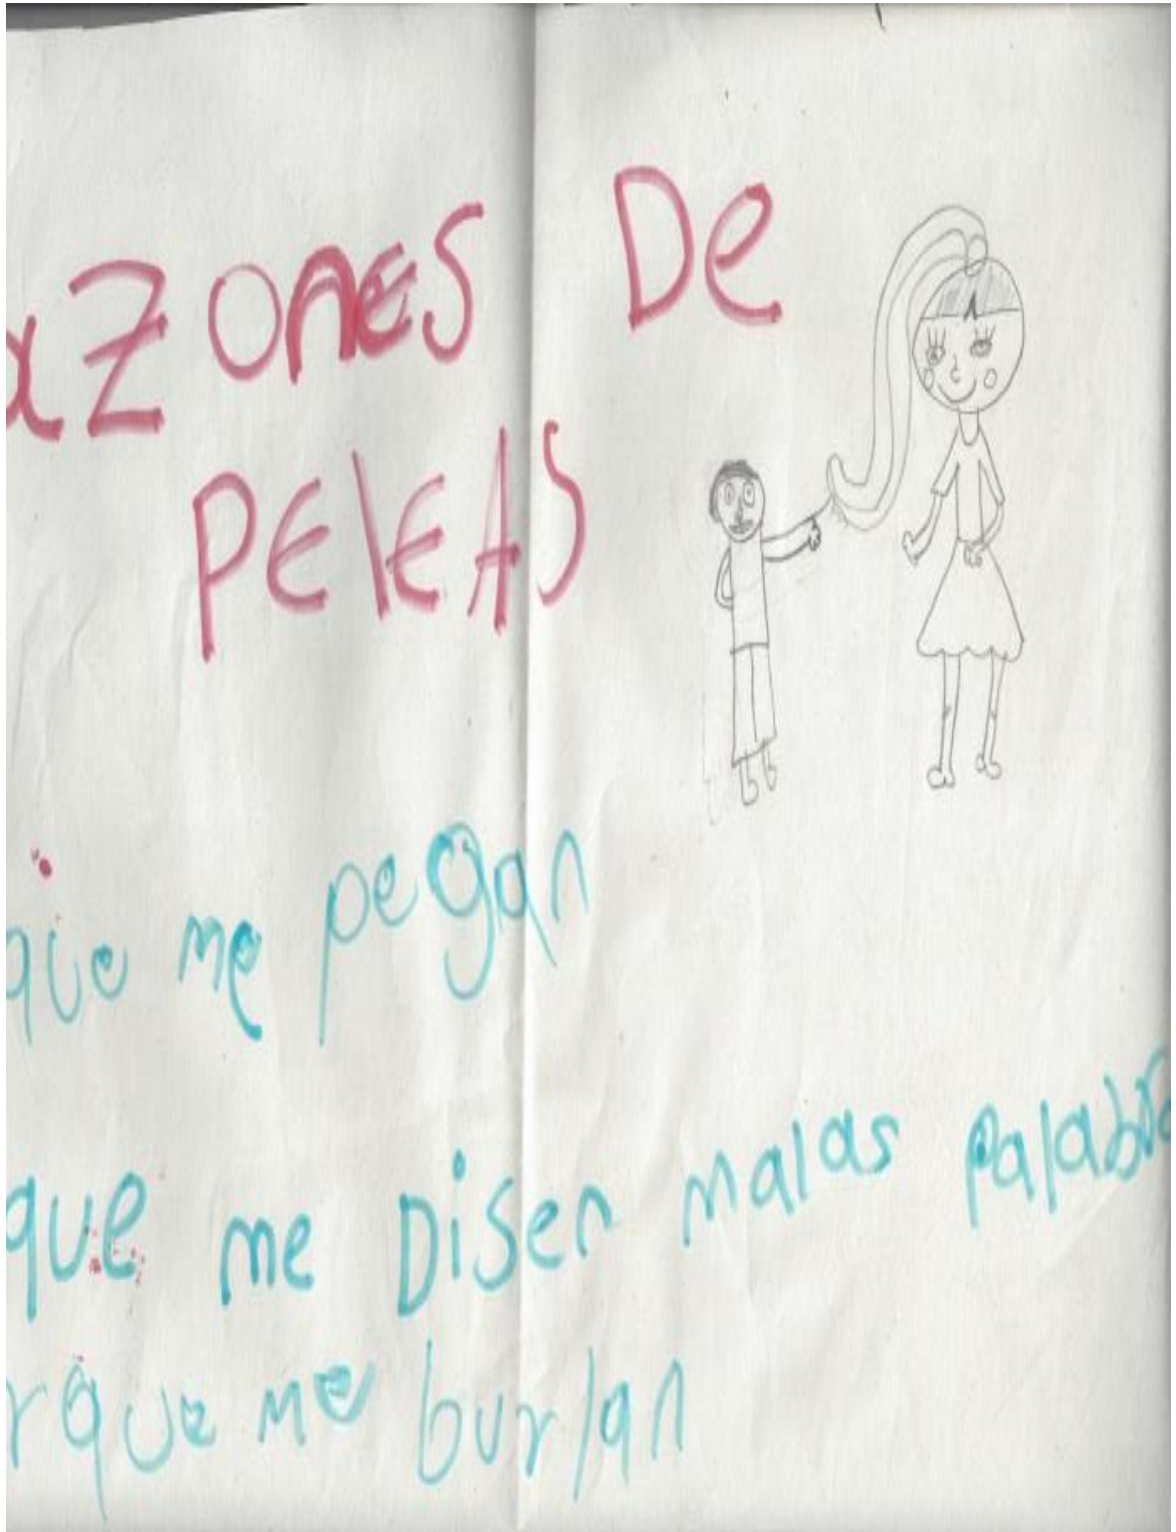 azones De
PeleAS
que me pegan
que me Disen malas palabra
rque me burlan